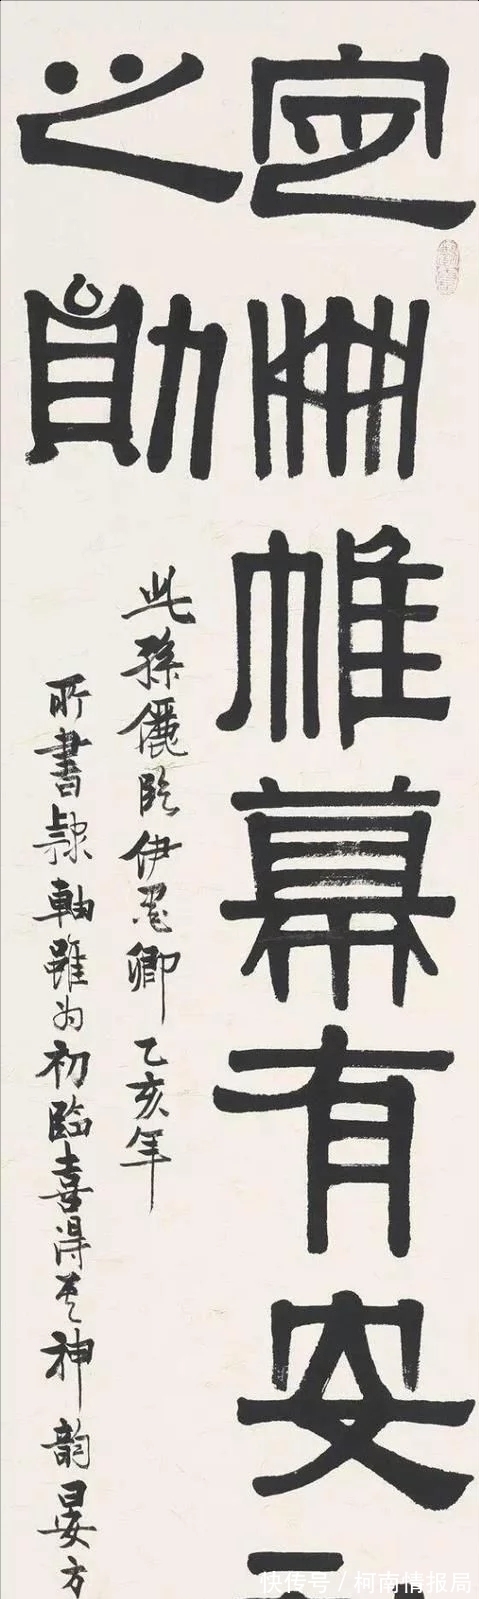 定冊帷幕有安
之勛
此孫儷臨伊墨卿乙亥年
所書隸軸雖为初臨喜得其神韻晏方
快传号/柯南情报局